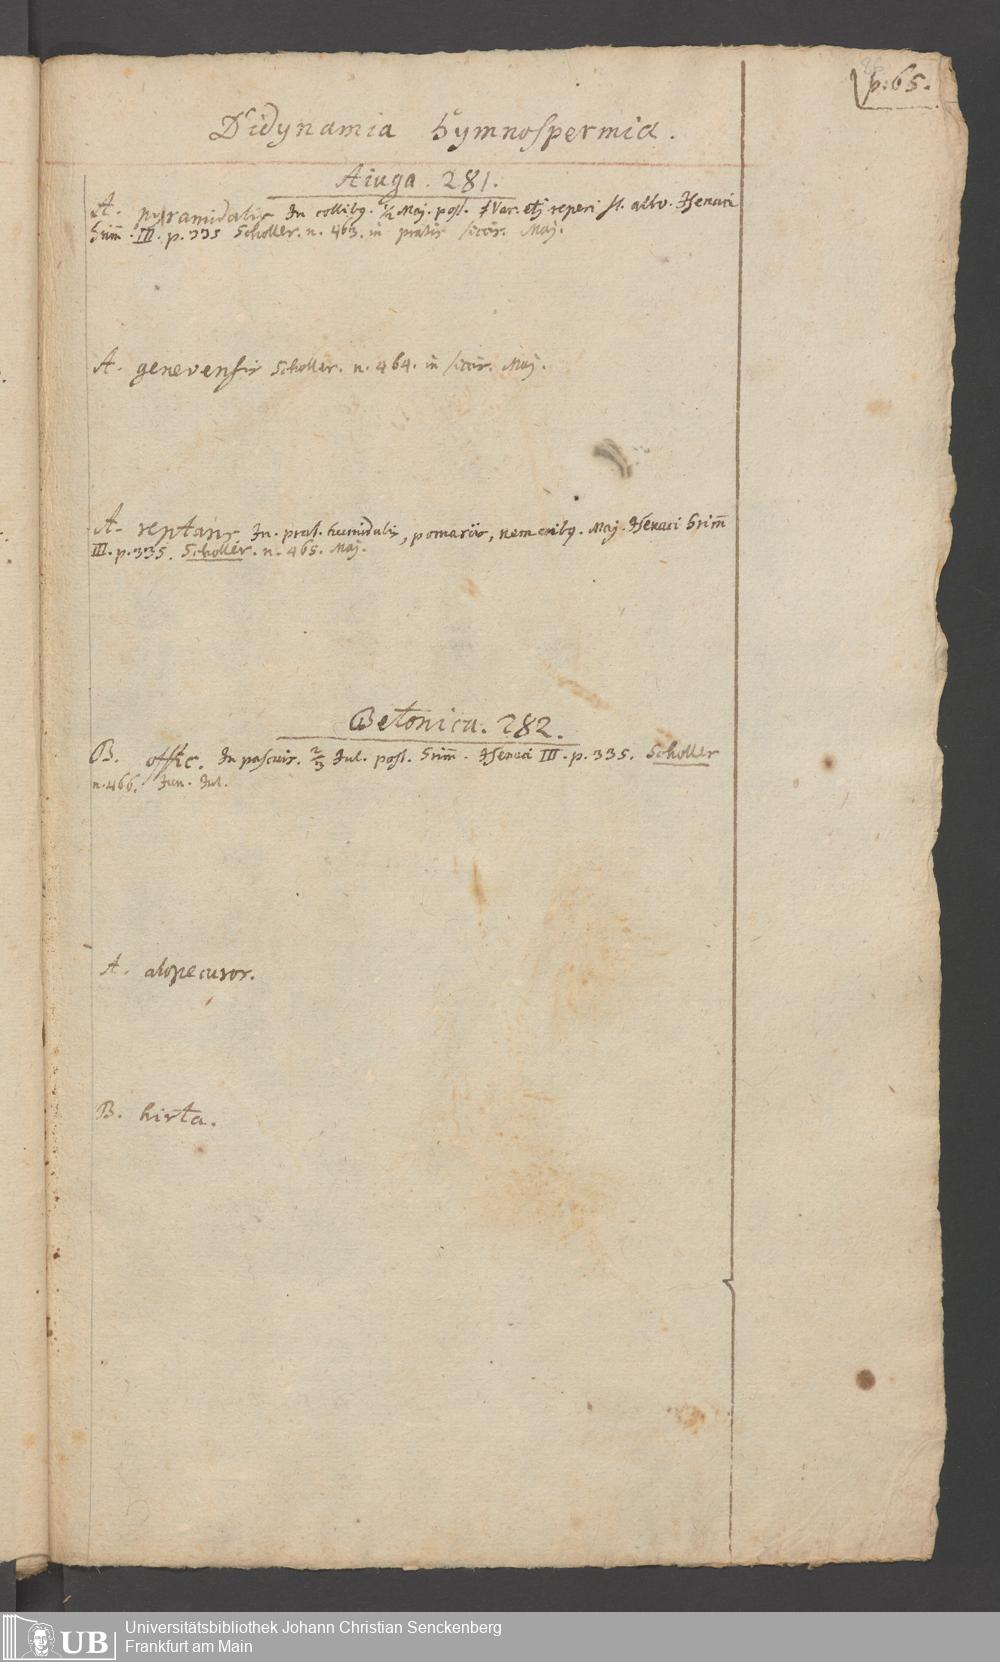 p. 65.
Didynamia Gymnospermia.
Aiuga. 281.
A. pyramidalis In collibq. 1/2 Maj. post. Var. etj reperi fl. albo. Isenaci
Grim̄. III. p. 335 Scholler. n. 463. in pratis siccis. Maj.
A. genevensis Scholler. n. 464. in siccis. Maj.
A. reptans In. prat. humidulis, pomariis, nemoribq. Maj. Isenaci Grim̄
III. p. 335. Scholler. n. 465. Maj.
Betonica. 282.
B. offic. In pascuis. 2/3 Jul. post. Grim̄. Isenaci III. p. 335. Scholler
n. 466. Jun. Jul.
A. alopecuror.
B. hirta.
UB
Universitätsbibliothek Johann Christian Senckenberg
Frankfurt am Main